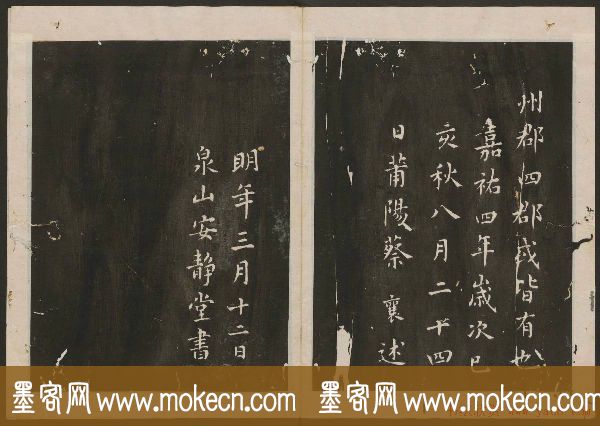 州郡四郡或皆有也
嘉祐四年歲次己
亥秋八月二十四
日莆陽蔡襄述
明年三月十二日
泉山安靜堂書
墨客网 www.mokecn.com 墨客网 www.mokecn.com